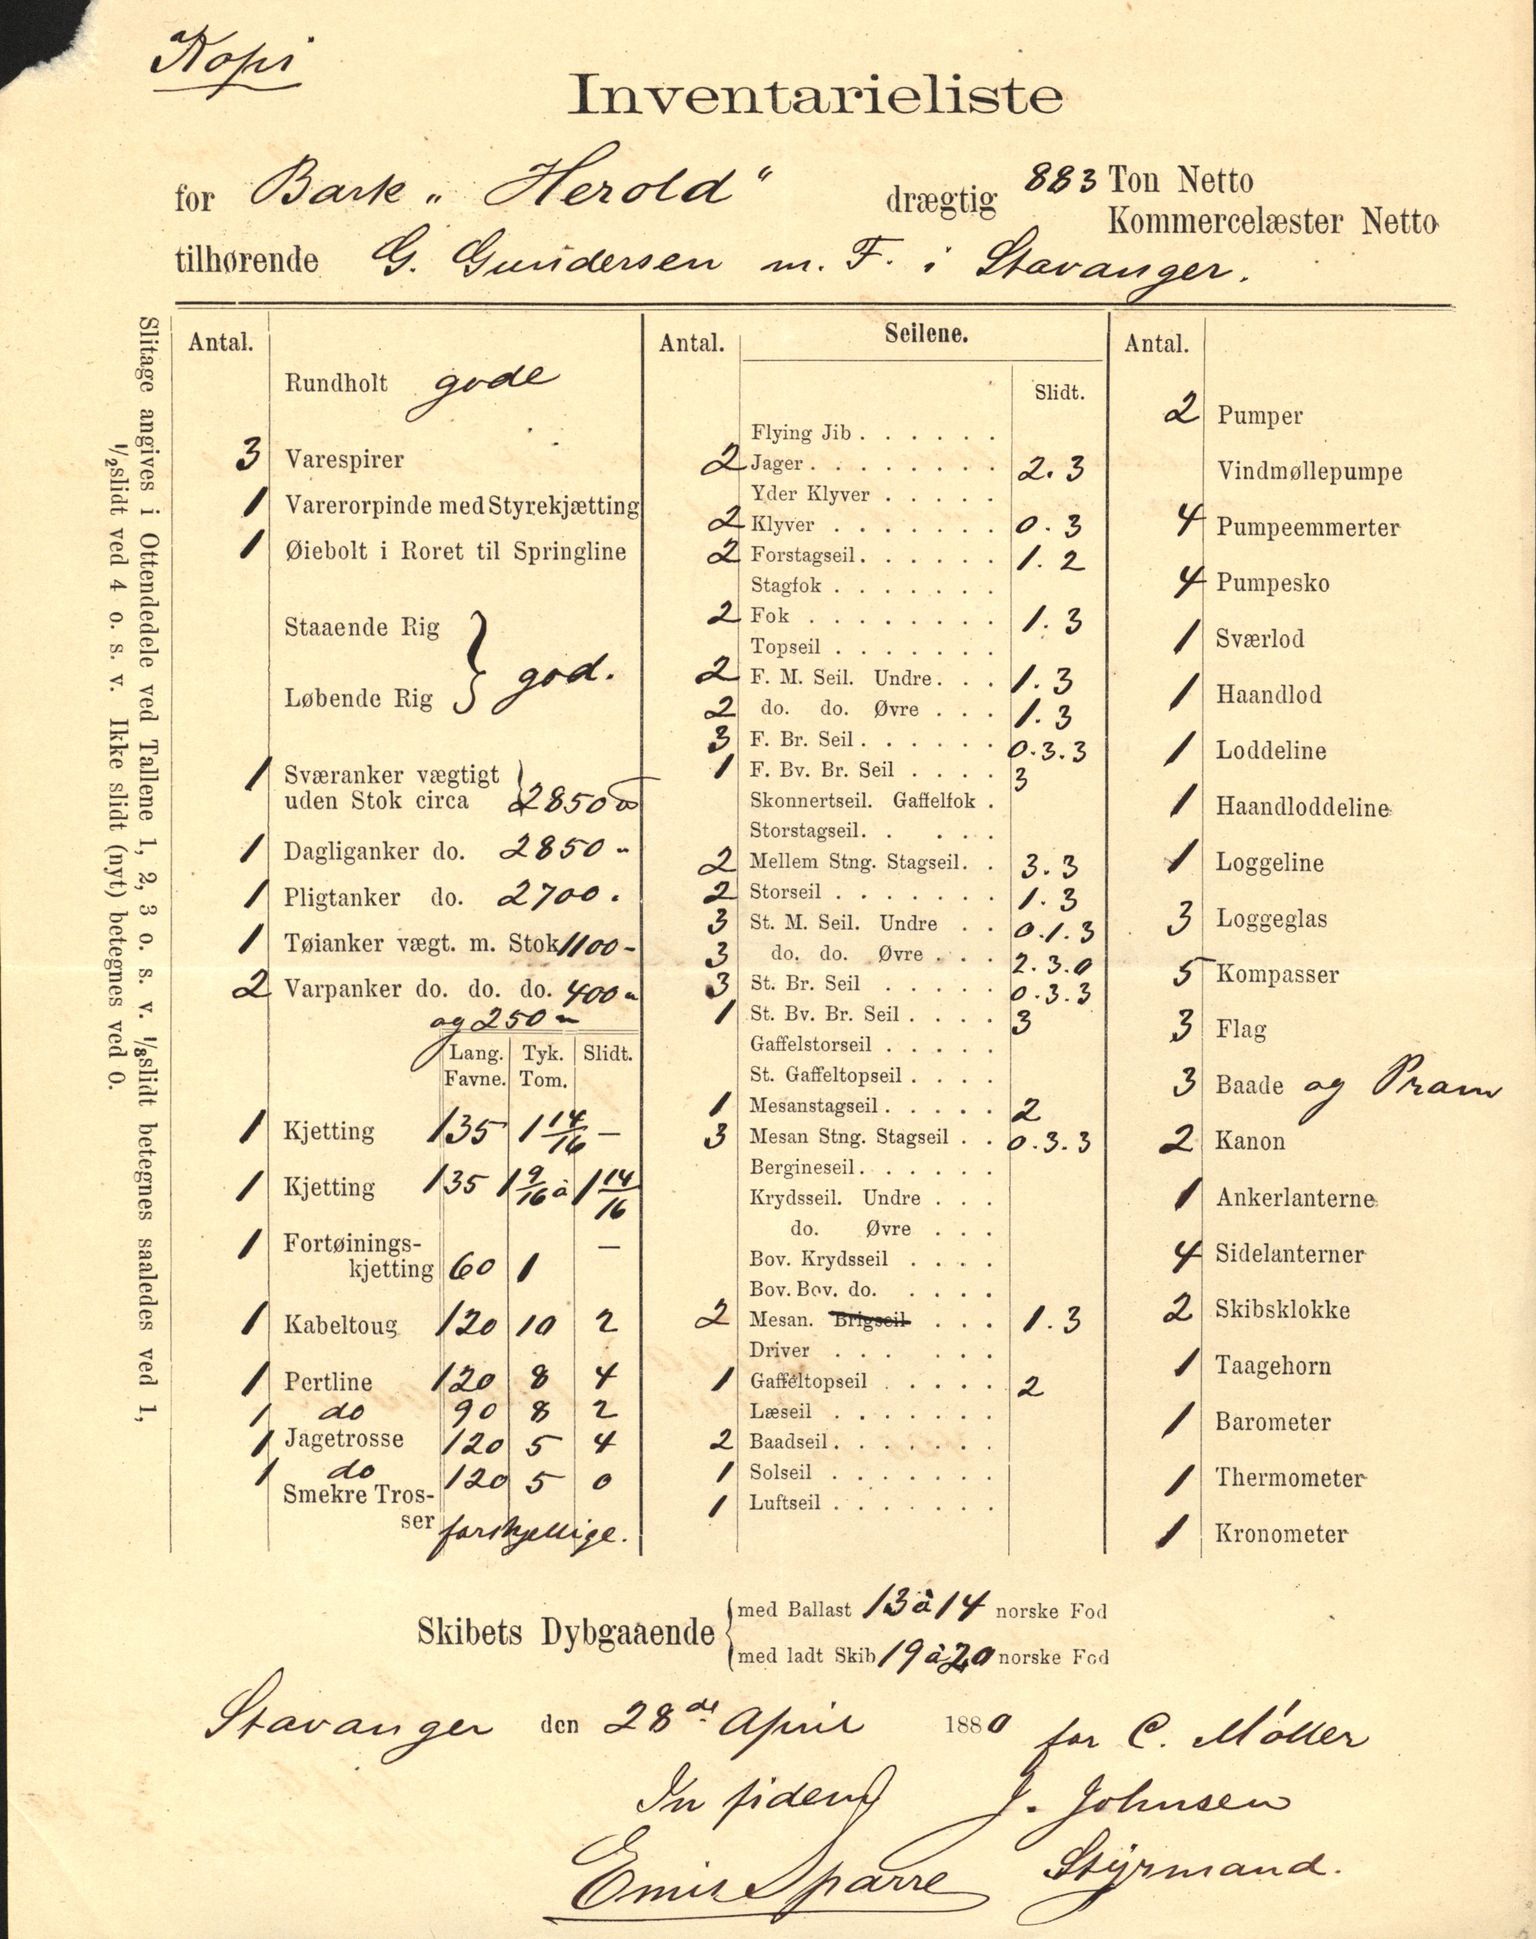 Kopi
Inventarieliste
for Bark „ Herold “ drægtig 883 Ton Netto
Kommercelæster Netto
tilhørende G. Gundersen m. F. i Stavanger.
Slitage angives i Ottendedele ved Tallene 1, 2, 3 o. s. v. 1/8 slidt betegnes saaledes ved 1,
1/2 slidt ved 4 o. s. v. Ikke slidt (nyt) betegnes ved 0.
Antal.
Rundholt gode
3 Varespirer
1 Varerorpinde med Styrekjætting
1 Øiebolt i Roret til Springline
Staaende Rig
Løbende Rig } god.
1 Sværanker vægtigt
uden Stok circa } 2850
1 Dagliganker do. 2850 „
1 Pligtanker do. 2700 „
1 Tøianker vægt. m. Stok 1100 „
2 Varpanker do. do. do. 400 „
og 250 „
Lang. Tyk. Slidt.
Favne. Tom.
1 Kjetting 135 1 14/16 —
1 Kjetting 135 1 9/16 à 1 14/16
1 Fortøinings- —
kjetting 60 1
1 Kabeltoug 120 10 2
1 Pertline 120 8 4
1 do 90 8 2
1 Jagetrosse 120 5 4
1 do 120 5 0
Smekre Tros-
ser forskjellige.
Antal. Seilene.
Slidt.
Flying Jib . . . . . .
2 Jager . . . . . . . 2. 3
Yder Klyver . . . . .
2 Klyver . . . . . . . 0. 3
2 Forstagseil . . . . . . 1. 2
Stagfok . . . . . . .
2 Fok . . . . . . . . 1. 3
Topseil . . . . . . .
2 F. M. Seil. Undre . . . 1. 3
2 do. do. Øvre . . . 1. 3
3 F. Br. Seil . . . . . . 0. 3. 3
1 F. Bv. Br. Seil . . . . 3
Skonnertseil. Gaffelfok .
Storstagseil . . . . .
2 Mellem Stng. Stagseil . . 3. 3
2 Storseil . . . . . . . 1. 3
3 St. M. Seil. Undre . . 0. 1. 3
3 do. do. Øvre . . . 2. 3. 0
3 St. Br. Seil . . . . . 0. 3. 3
1 St. Bv. Br. Seil . . . . 3
Gaffelstorseil . . . . .
St. Gaffeltopseil . . . .
1 Mesanstagseil . . . . . 2
3 Mesan Stng. Stagseil . . 0. 3. 3
Bergineseil . . . . . .
Krydsseil. Undre . . .
do. Øvre . . .
Bov. Krydsseil . . . .
Bov. Bov. do. . . . .
2 Mesan. Brigseil . . . 1. 3
Driver . . . . . .
1 Gaffeltopseil . . . . . 2
Læseil . . . . . . .
2 Baadseil . . . . . .
1 Solseil . . . . . . .
1 Luftseil . . . . . . .
Antal.
2 Pumper
Vindmøllepumpe
4 Pumpeemmerter
4 Pumpesko
1 Sværlod
1 Haandlod
1 Loddeline
1 Haandloddeline
1 Loggeline
3 Loggeglas
5 Kompasser
3 Flag
3 Baade og Pram
2 Kanon
1 Ankerlanterne
4 Sidelanterner
2 Skibsklokke
1 Taagehorn
1 Barometer
1 Thermometer
1 Kronometer
Skibets Dybgaaende { med Ballast 13 à 14 norske Fod
med ladt Skib 19 à 20 norske Fod
Stavanger den 28de April 1880 for C. Møller
In fidem J. Johnsen
Emil Sparre Styrmand.